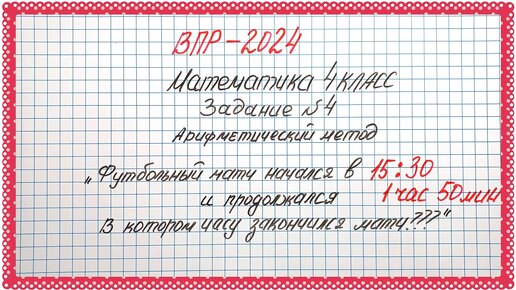 ВПР-2024
Математика 4 класс
Задание №4
Арифметический метод
„Футбольный матч начался в 15:30
и продолжался 1 час 50 мин
В котором часу закончился матч???"